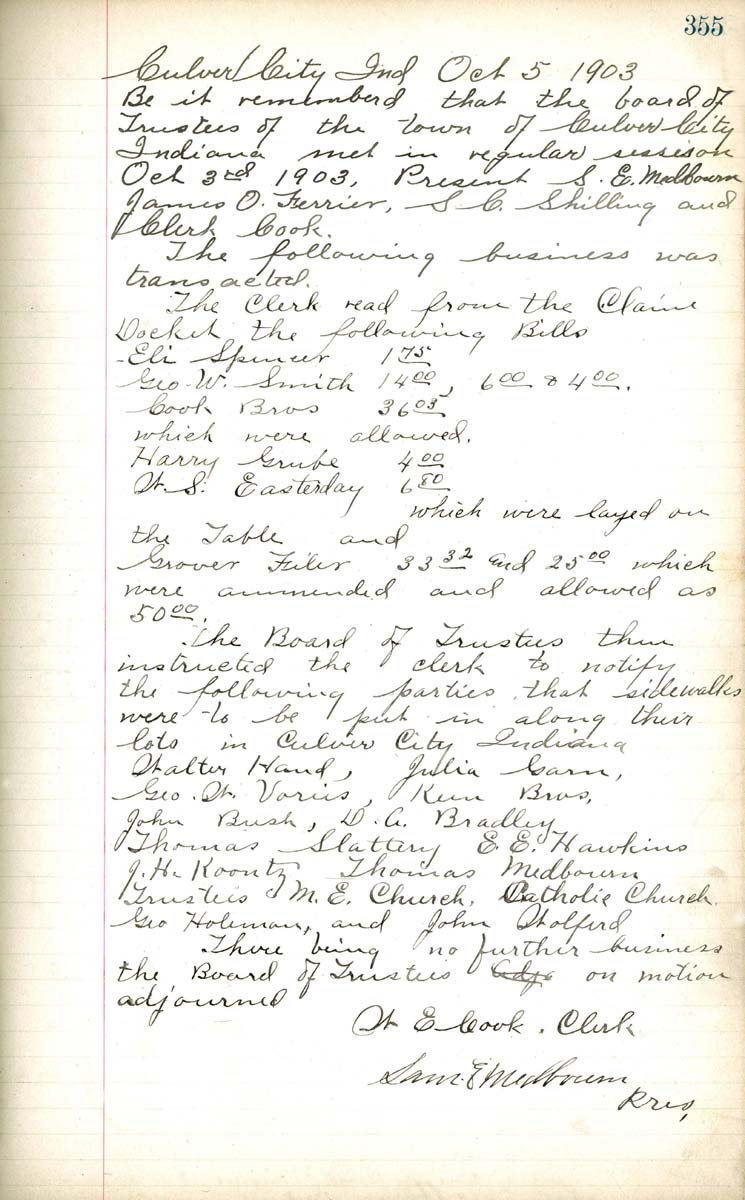 355
Culver City Ind Oct 5 1903
Be it rememberd that the board of
Trustees of the town of Culver City
Indiana met in regular session
Oct 3rd 1903, Present S. E. Medbourn
James O. Ferrier, S. C. Shilling and
Clerk Cook.
The following business was
transacted.
The Clerk read from the Claim
Docket the following Bills
Eli Spencer 1 75
Geo. W. Smith 14 00, 6 00 & 4 00.
Cook Bros 36 03
which were allowed.
Harry Grube 4 00
W. S. Easterday 6 80
which were layed on
the Table and
Grover Filer 33 32 and 25 00 which
were ammended and allowed as
50 00.
The Board of Trustees then
instructed the clerk to notify
the following parties that sidewalks
were to be put in along their
lots in Culver City Indiana
Walter Hand, Julia Garn,
Geo. W. Voriis, Bros,
John Bush, D. A. Bradley
Thomas Slattery E. E. Hawkins
J. H. Koontz Thomas Medbourn
Trustees M. E. Church, Catholic Church.
Geo Holeman, and John Wolford
There being no further business
the Board of Trustees on motion
adjourned
W E Cook. Clerk
Sam. E Medbourn
Pres,